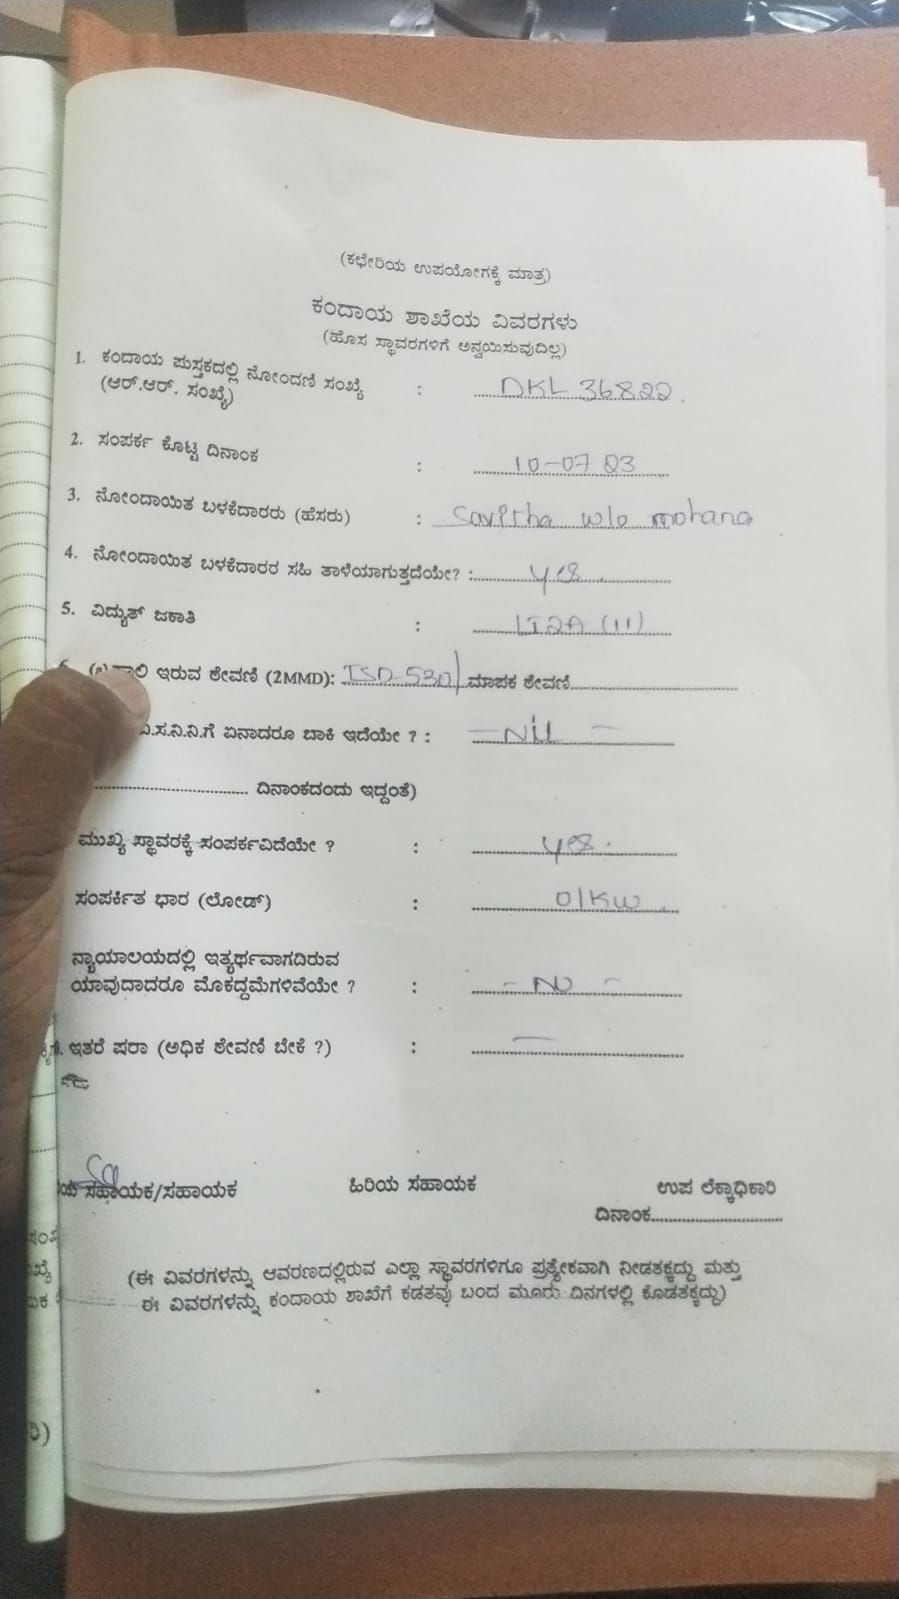 (ಕಛೇರಿಯ ಉಪಯೋಗಕ್ಕೆ ಮಾತ್ರ)
ಕಂದಾಯ ಶಾಖೆಯ ವಿವರಗಳು
(ಹೊಸ ಸ್ಥಾವರಗಳಿಗೆ ಅನ್ವಯಿಸುವುದಿಲ್ಲ)
1. ಕಂದಾಯ ಪುಸ್ತಕದಲ್ಲಿ ನೋಂದಣಿ ಸಂಖ್ಯೆ
(ಆರ್.ಆರ್. ಸಂಖ್ಯೆ) : DKL 36822
2. ಸಂಪರ್ಕ ಕೊಟ್ಟ ದಿನಾಂಕ : 10-07 03
3. ನೋಂದಾಯಿತ ಬಳಕೆದಾರರು (ಹೆಸರು) : Savitha w/o mohana
4. ನೋಂದಾಯಿತ ಬಳಕೆದಾರರ ಸಹಿ ತಾಳೆಯಾಗುತ್ತದೆಯೇ? : yes
5. ವಿದ್ಯುತ್ ಜಕಾತಿ :
ಇರುವ ಠೇವಣಿ (2MMD): ISD-530/ ಮಾಪಕ ಠೇವಣಿ
ಸ.ನಿ.ನಿ.ಗೆ ಏನಾದರೂ ಬಾಕಿ ಇದೆಯೇ ? : - Nil -
ದಿನಾಂಕದಂದು ಇದ್ದಂತೆ)
ಮುಖ್ಯ ಸ್ಥಾವರಕ್ಕೆ ಸಂಪರ್ಕವಿದೆಯೇ ? : yes.
ಸಂಪರ್ಕಿತ ಭಾರ (ಲೋಡ್) : 01KW
ನ್ಯಾಯಾಲಯದಲ್ಲಿ ಇತ್ಯರ್ಥವಾಗದಿರುವ
ಯಾವುದಾದರೂ ಮೊಕದ್ದಮೆಗಳಿವೆಯೇ ? : - No -
ಇತರೆ ಷರಾ (ಅಧಿಕ ಠೇವಣಿ ಬೇಕೆ ?) : -
ಸಹಾಯಕ/ಸಹಾಯಕ ಹಿರಿಯ ಸಹಾಯಕ ಉಪ ಲೆಕ್ಕಾಧಿಕಾರಿ
ದಿನಾಂಕ
(ಈ ವಿವರಗಳನ್ನು ಆವರಣದಲ್ಲಿರುವ ಎಲ್ಲಾ ಸ್ಥಾವರಗಳಿಗೂ ಪ್ರತ್ಯೇಕವಾಗಿ ನೀಡತಕ್ಕದ್ದು ಮತ್ತು
ಈ ವಿವರಗಳನ್ನು ಕಂದಾಯ ಶಾಖೆಗೆ ಕಡತವು ಬಂದ ಮೂರು ದಿನಗಳಲ್ಲಿ ಕೊಡತಕ್ಕದ್ದು)